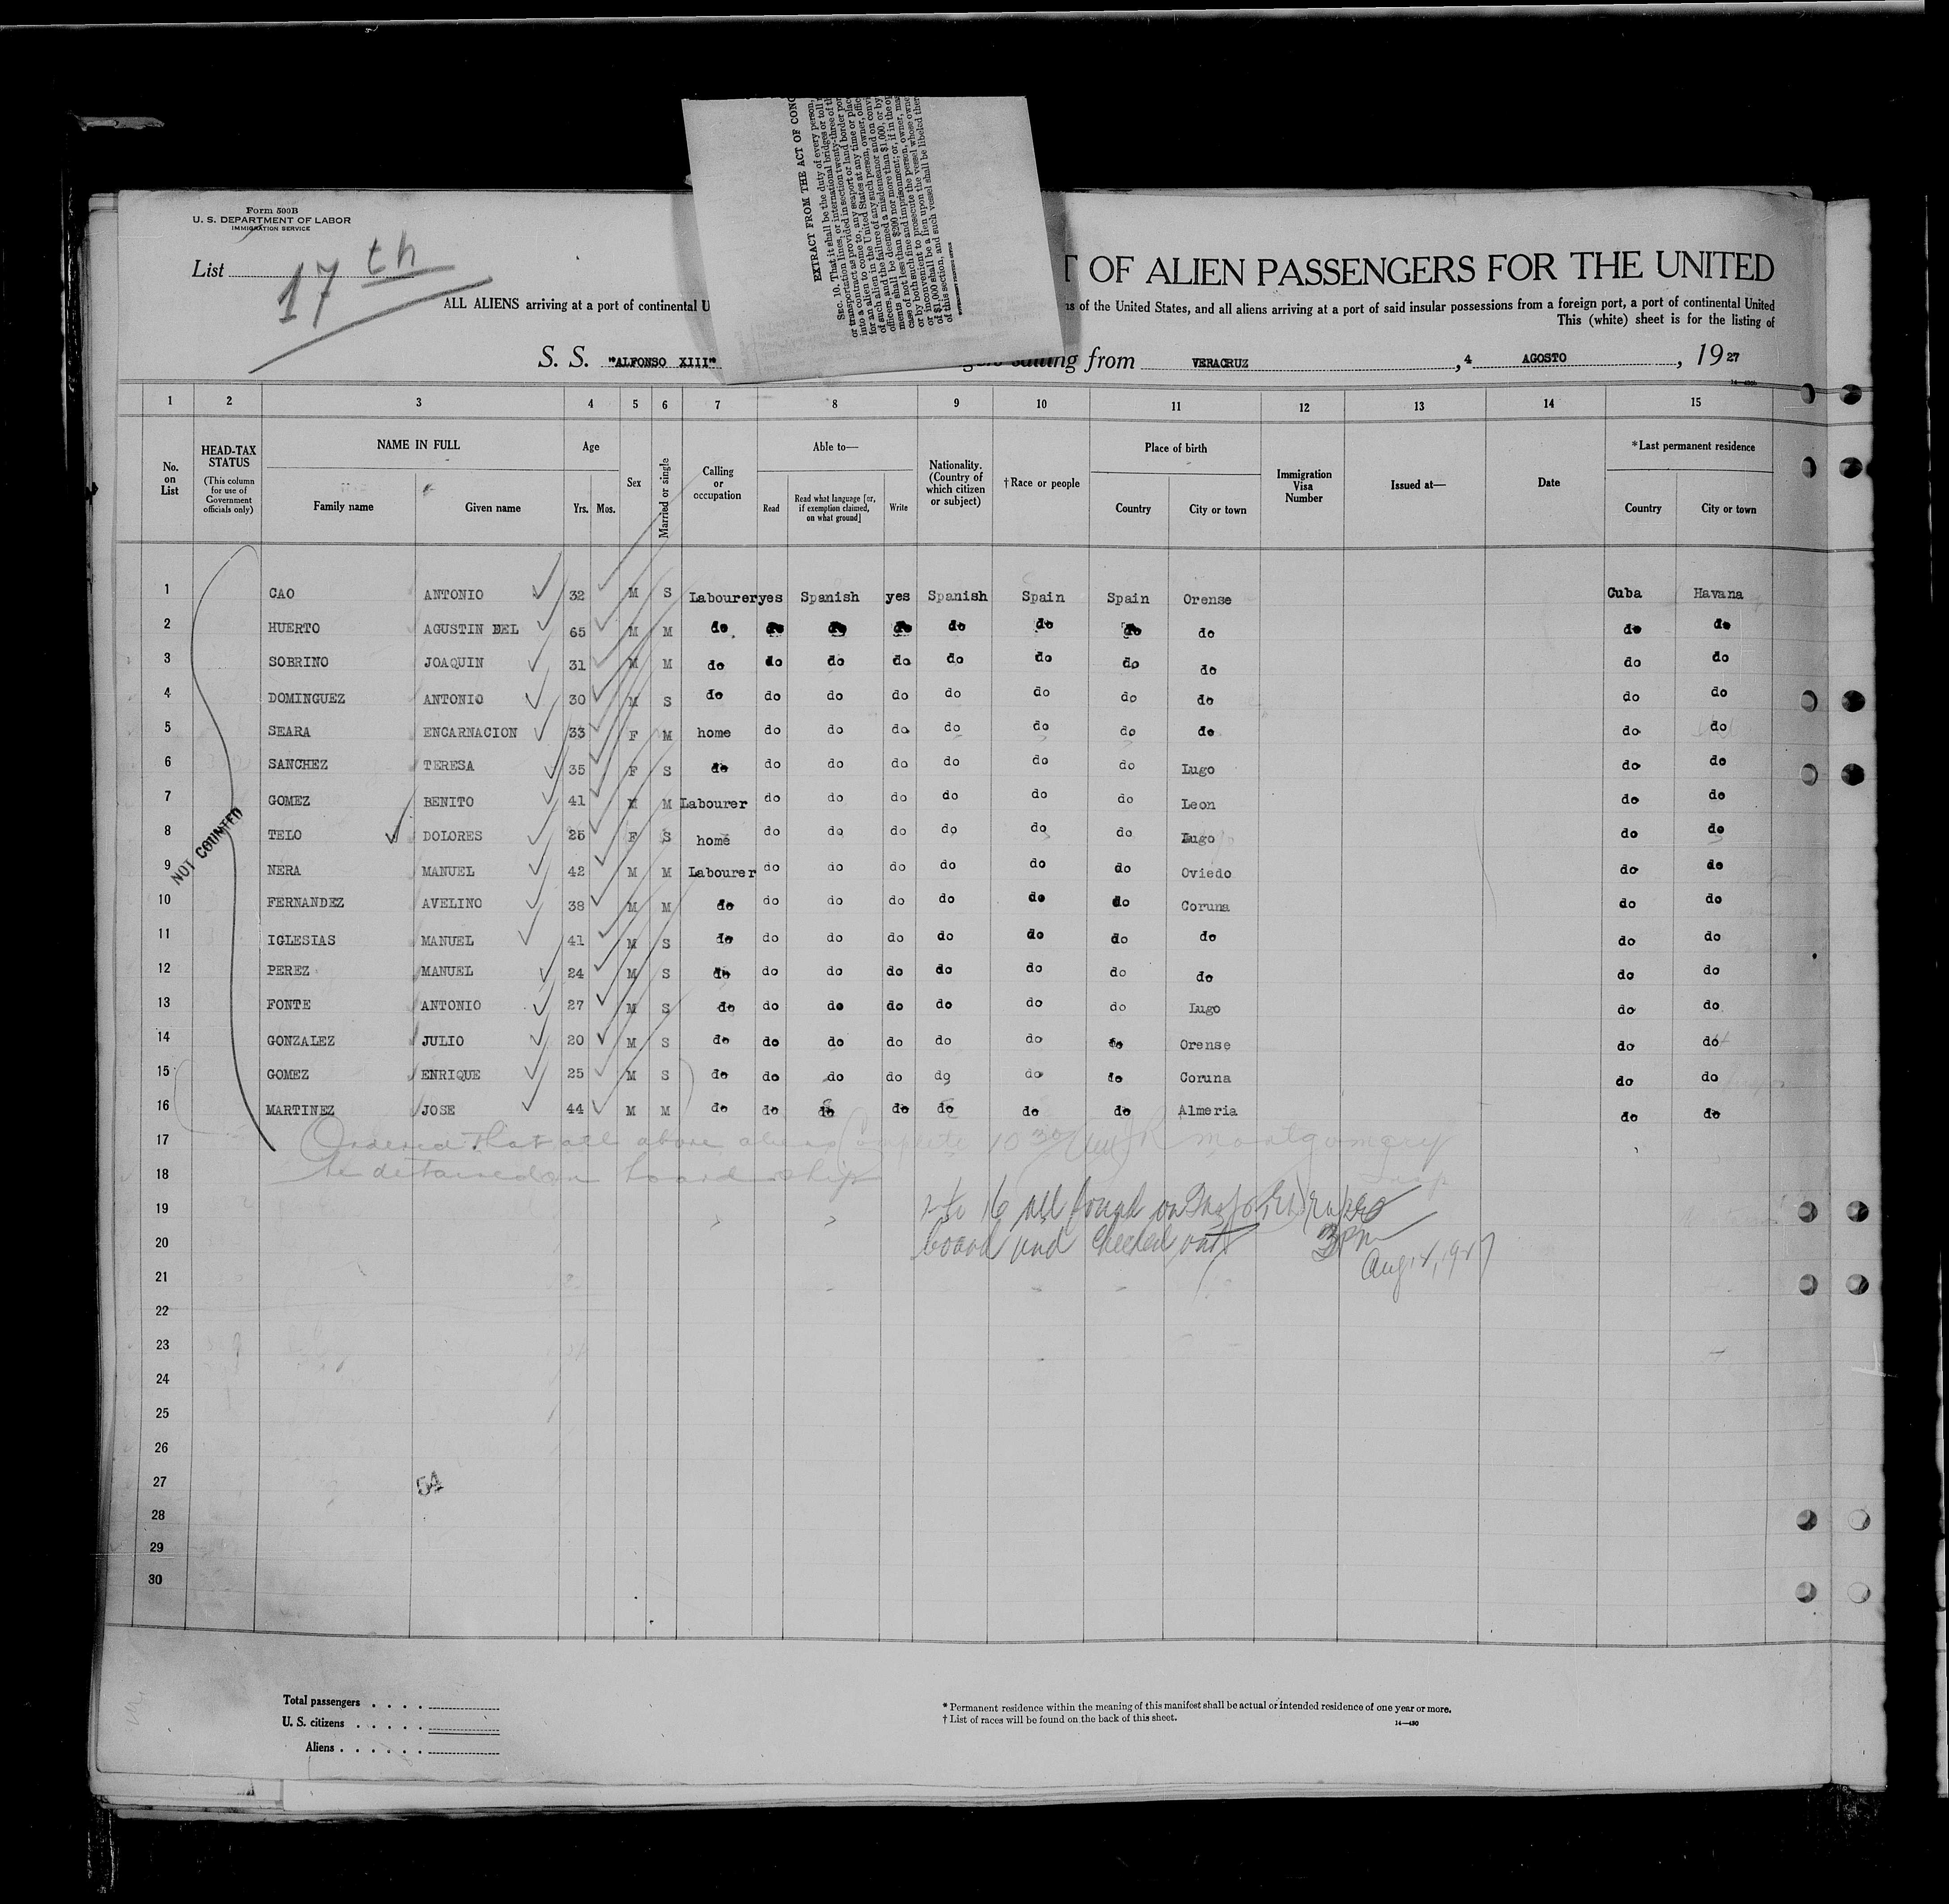 Form 500B
U. S. DEPARTMENT OF LABOR
IMMIGRATION SERVICE
List 17th
EXTRACT FROM THE ACT OF CONG
SEC. 10. That it shall be the duty of every person,
or transportation lines, or international bridges or toll
T OF ALIEN PASSENGERS FOR THE UNITED
ALL ALIENS arriving at a port of continental U
ns of the United States, and all aliens arriving at a port of said insular possessions from a foreign port, a port of continental United
This (white) sheet is for the listing of
S. S. "ALFONSO XIII" sailing from VERACRUZ , 4 AGOSTO , 1927
1 2 3 4 5 6 7 8 9 10 11 12 13 14 15
No. on List
HEAD-TAX STATUS (This column for use of Government officials only)
NAME IN FULL Family name Given name
Age Yrs. Mos.
Sex
Married or single
Calling or occupation
Able to— Read Read what language [or, if exemption claimed, on what ground] Write
Nationality. (Country of which citizen or subject)
†Race or people
Place of birth Country City or town
Immigration Visa Number
Issued at—
Date
*Last permanent residence Country City or town
1 CAO ANTONIO 32 M S Labourer yes Spanish yes Spanish Spain Spain Orense Cuba Havana
2 HUERTO AGUSTIN DEL 65 M M do do do do do do do do do do
3 SOBRINO JOAQUIN 31 M M do do do do do do do do do do
4 DOMINGUEZ ANTONIO 30 M S do do do do do do do do do do
5 SEARA ENCARNACION 33 F M home do do do do do do do do do
6 SANCHEZ TERESA 35 F S do do do do do do do Lugo do do
7 GOMEZ BENITO 41 M M Labourer do do do do do do Leon do do
8 TELO DOLORES 25 F S home do do do do do do Lugo do do
9 NERA MANUEL 42 M M Labourer do do do do do do Oviedo do do
10 FERNANDEZ AVELINO 38 M M do do do do do do do Coruna do do
11 IGLESIAS MANUEL 41 M S do do do do do do do do do do
12 PEREZ MANUEL 24 M S do do do do do do do do do do
13 FONTE ANTONIO 27 M S do do do do do do do Lugo do do
14 GONZALEZ JULIO 20 M S do do do do do do do Orense do do
15 GOMEZ ENRIQUE 25 M S do do do do do do do Coruna do do
16 MARTINEZ JOSE 44 M M do do do do do do do Almeria do do
NOT COUNTED
17 Ordered that all above aliens Complete 10 30 Montgomery
18 be detained on board ship Insp
19 1 to 16 all found on
20 board and checked out 3 PM
21 Aug 14, 1927
22
23
24
25
26
27 54
28
29
30
Total passengers
U. S. citizens
Aliens
* Permanent residence within the meaning of this manifest shall be actual or intended residence of one year or more.
† List of races will be found on the back of this sheet.
14—430